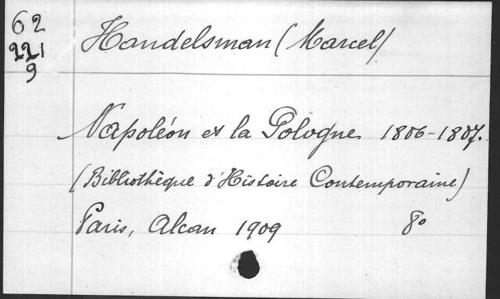 62
221
9
Handelsman (Marcel)
Napoléon et la Pologne 1806-1807.
(Bibliothèque d'Histoire Contemporaine)
Paris, Alcan 1909 8°